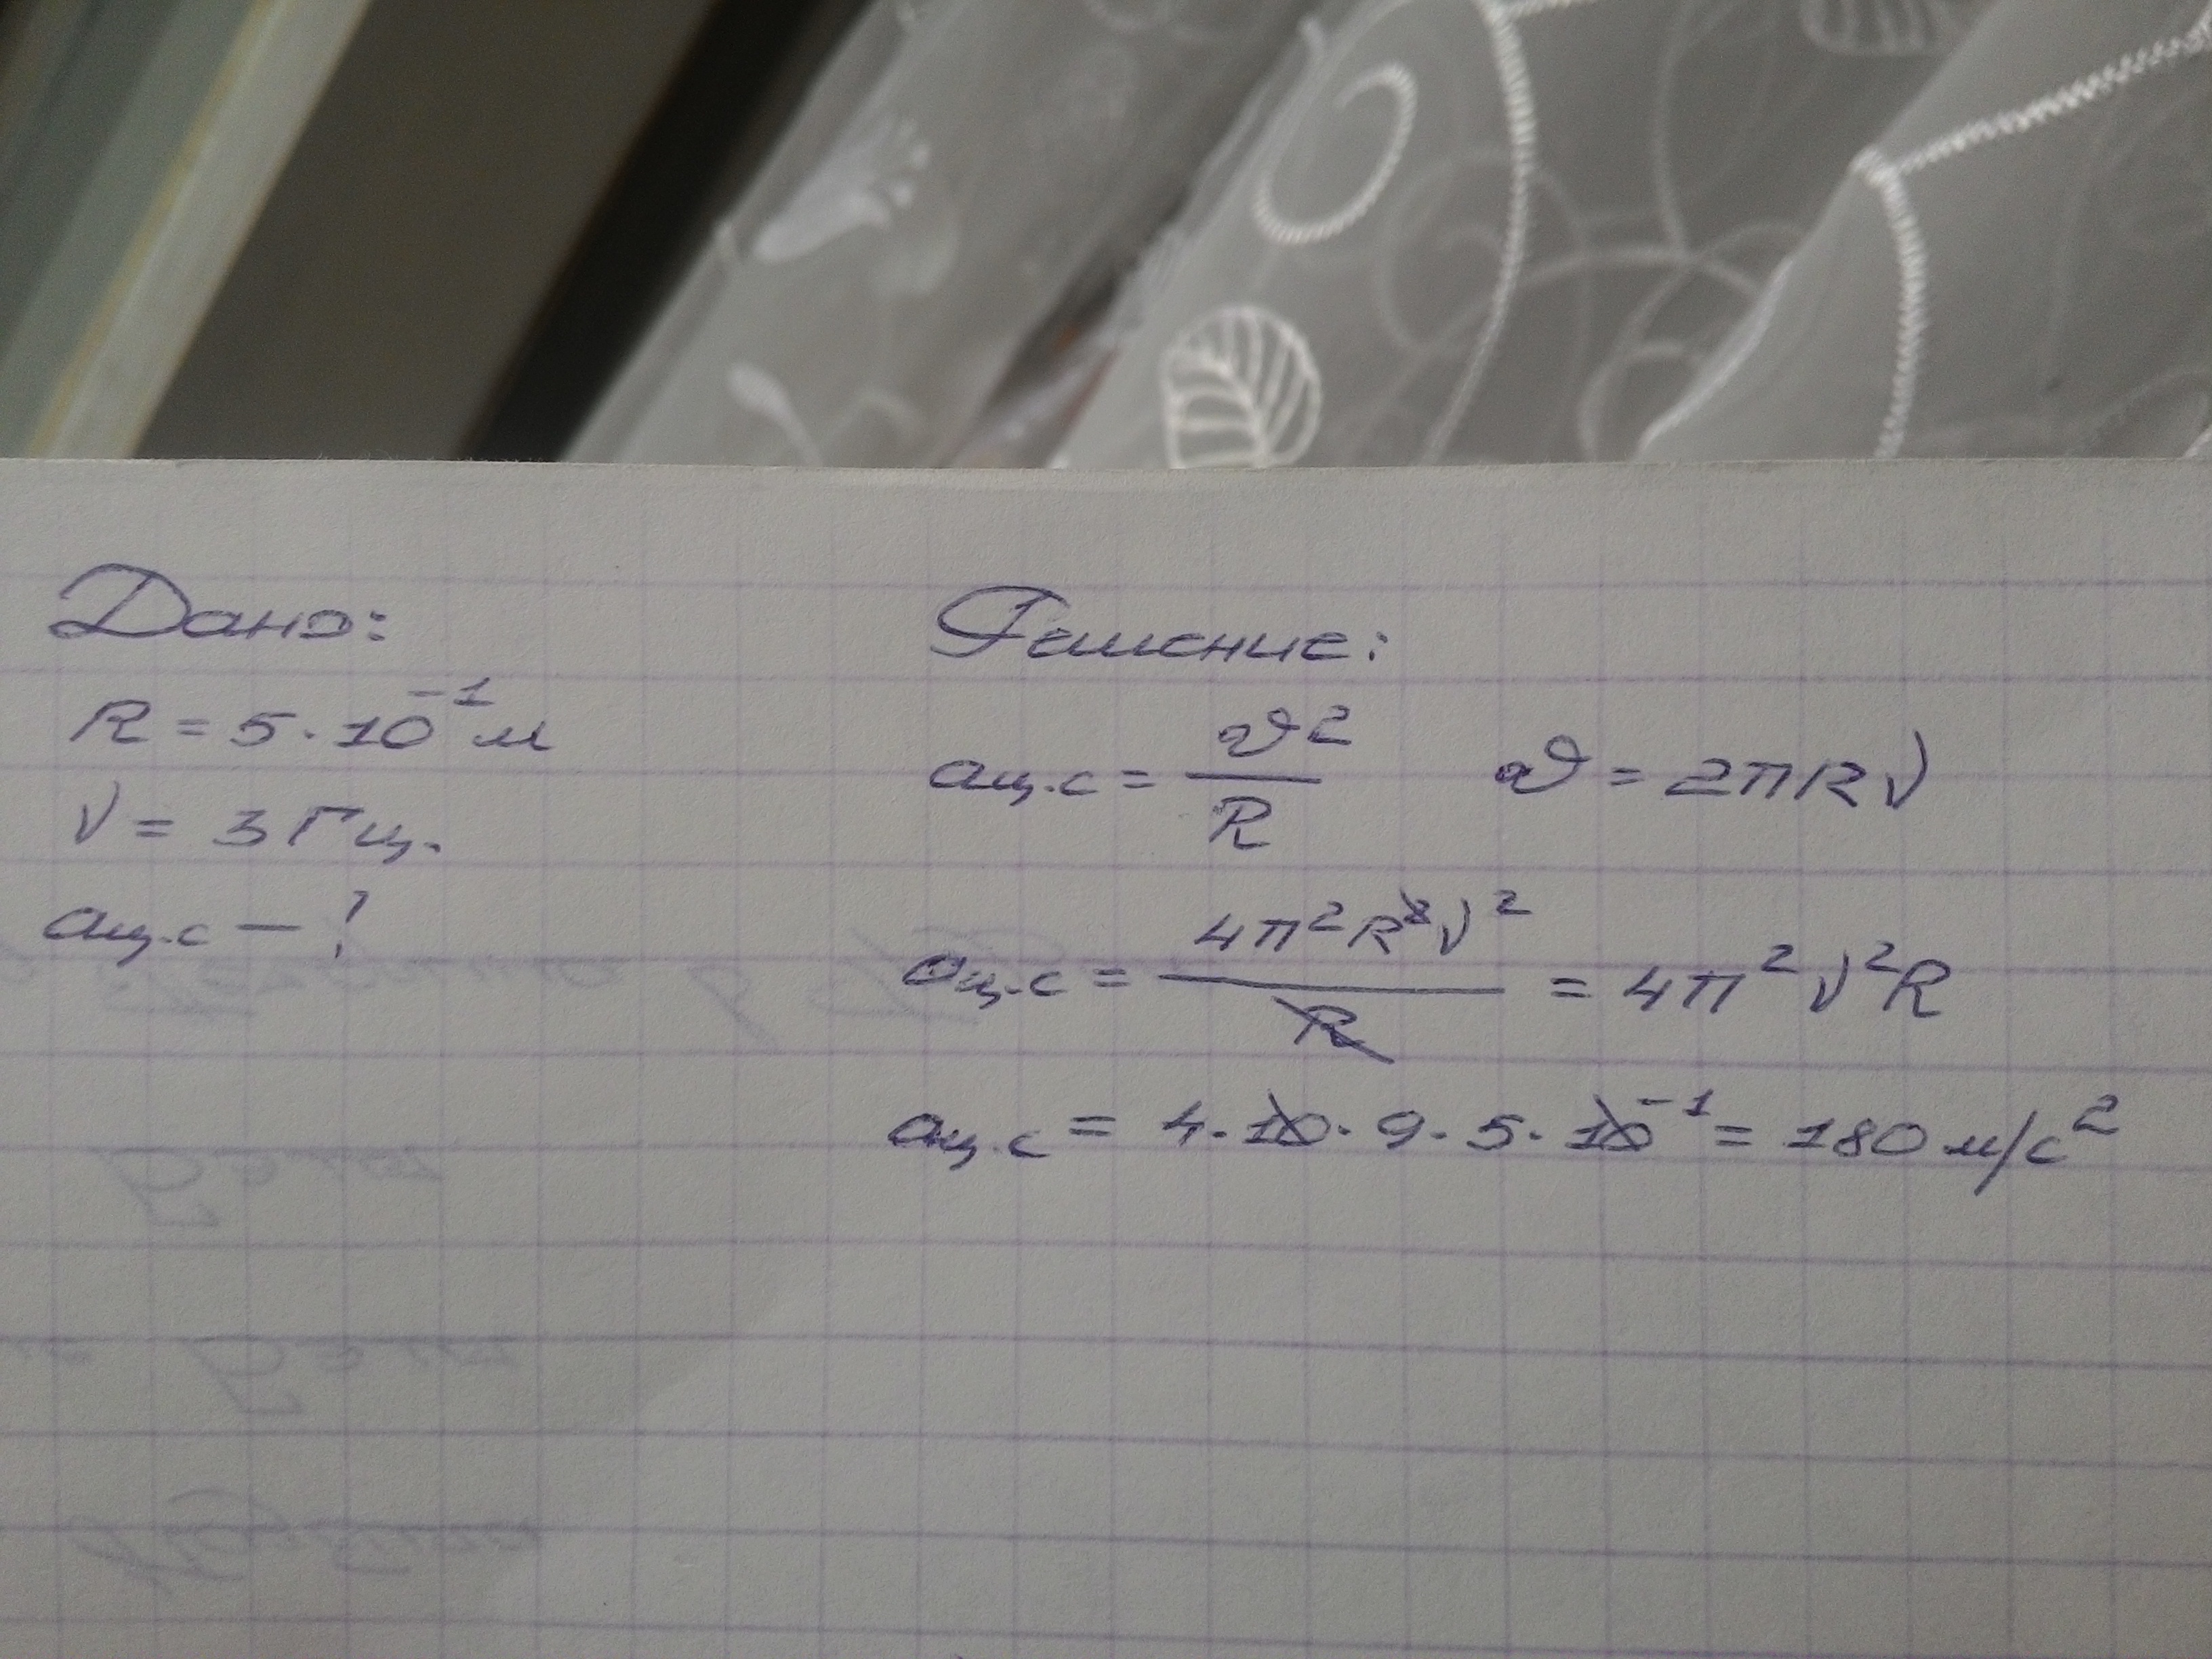 Дано:
R = 5·10⁻¹ м
ν = 3 Гц.
aц.с — ?
Решение:
aц.с = υ²/R υ = 2πRν
aц.с = 4π²R²ν²/R = 4π²ν²R
aц.с = 4·10·9·5·10⁻¹ = 180 м/с²